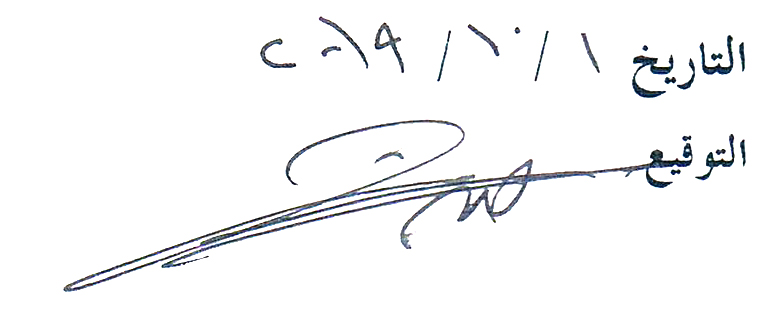 التاريخ ١ / ١٠ / ٢٠١٩
التوقيع